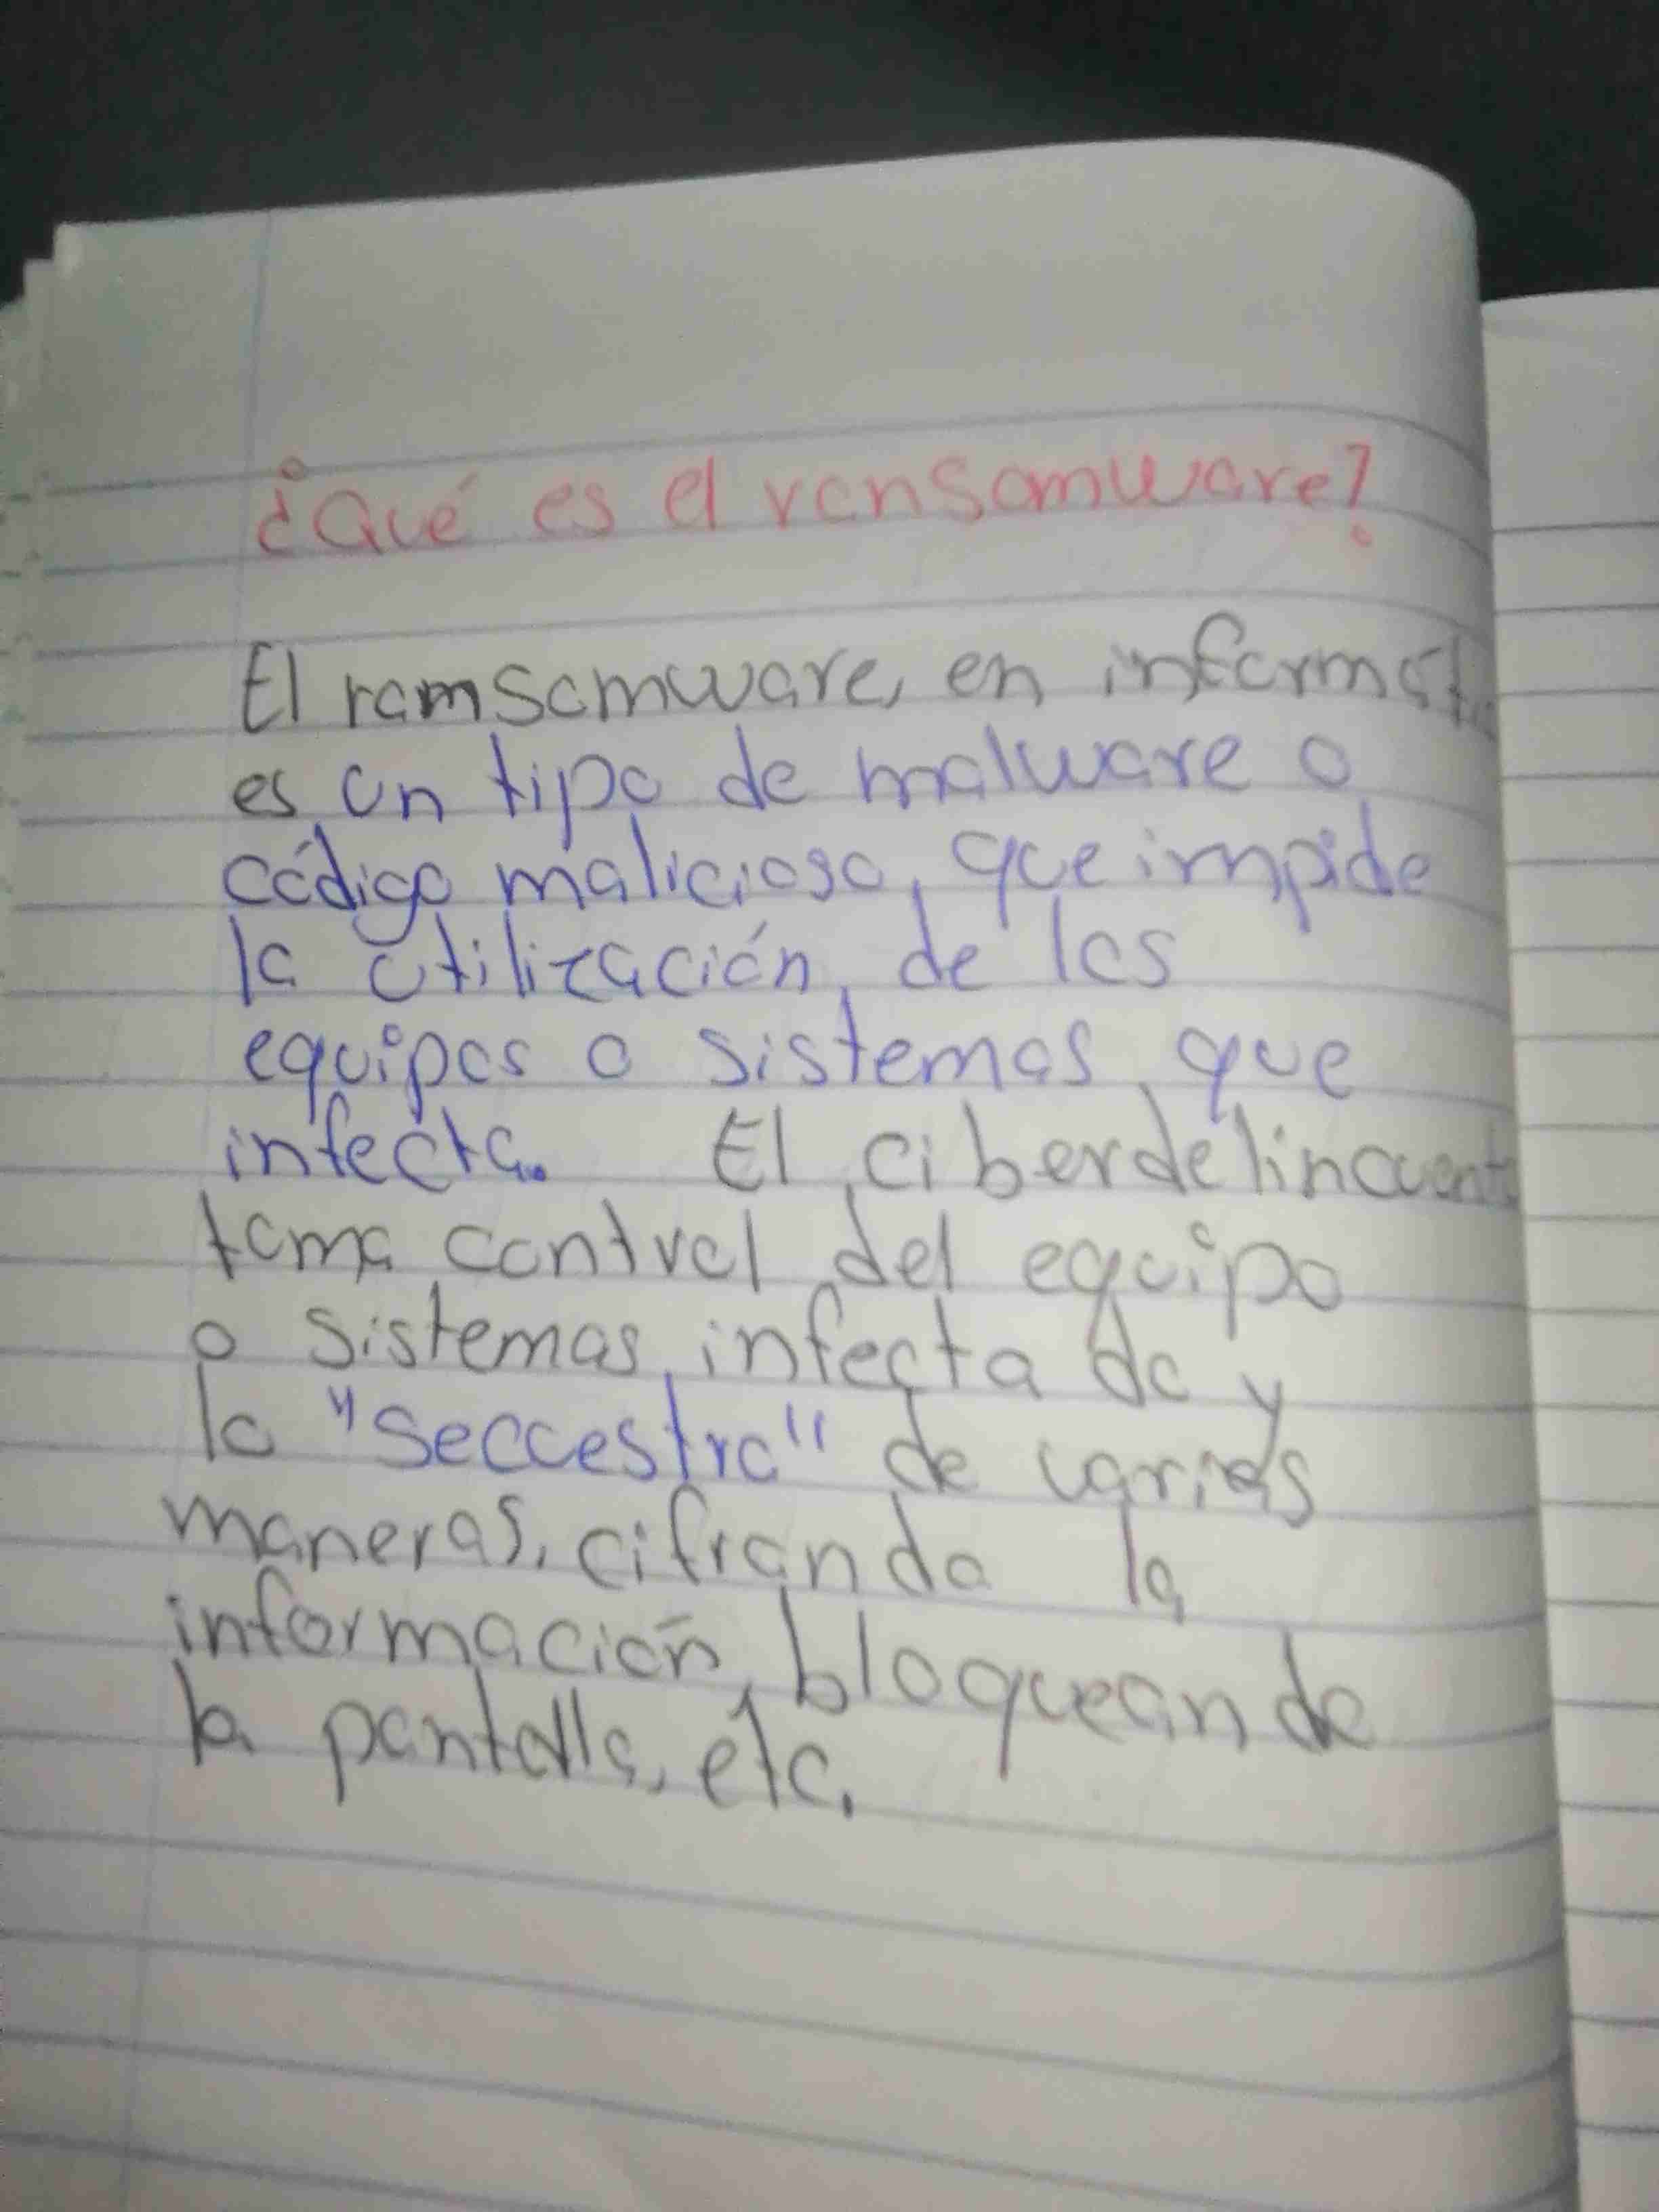 ¿Qué es el ransomware?
El ramsomware, en informáti
es un tipo de malware o
código malicioso, que impide
la utilización de los
equipos o sistemas que
infecta. El ciberdelincuente
toma control del equipo
o sistemas infecta do y
lo "seccestra" de varias
maneras, cifrando la
información, bloqueando
la pantalla, etc.